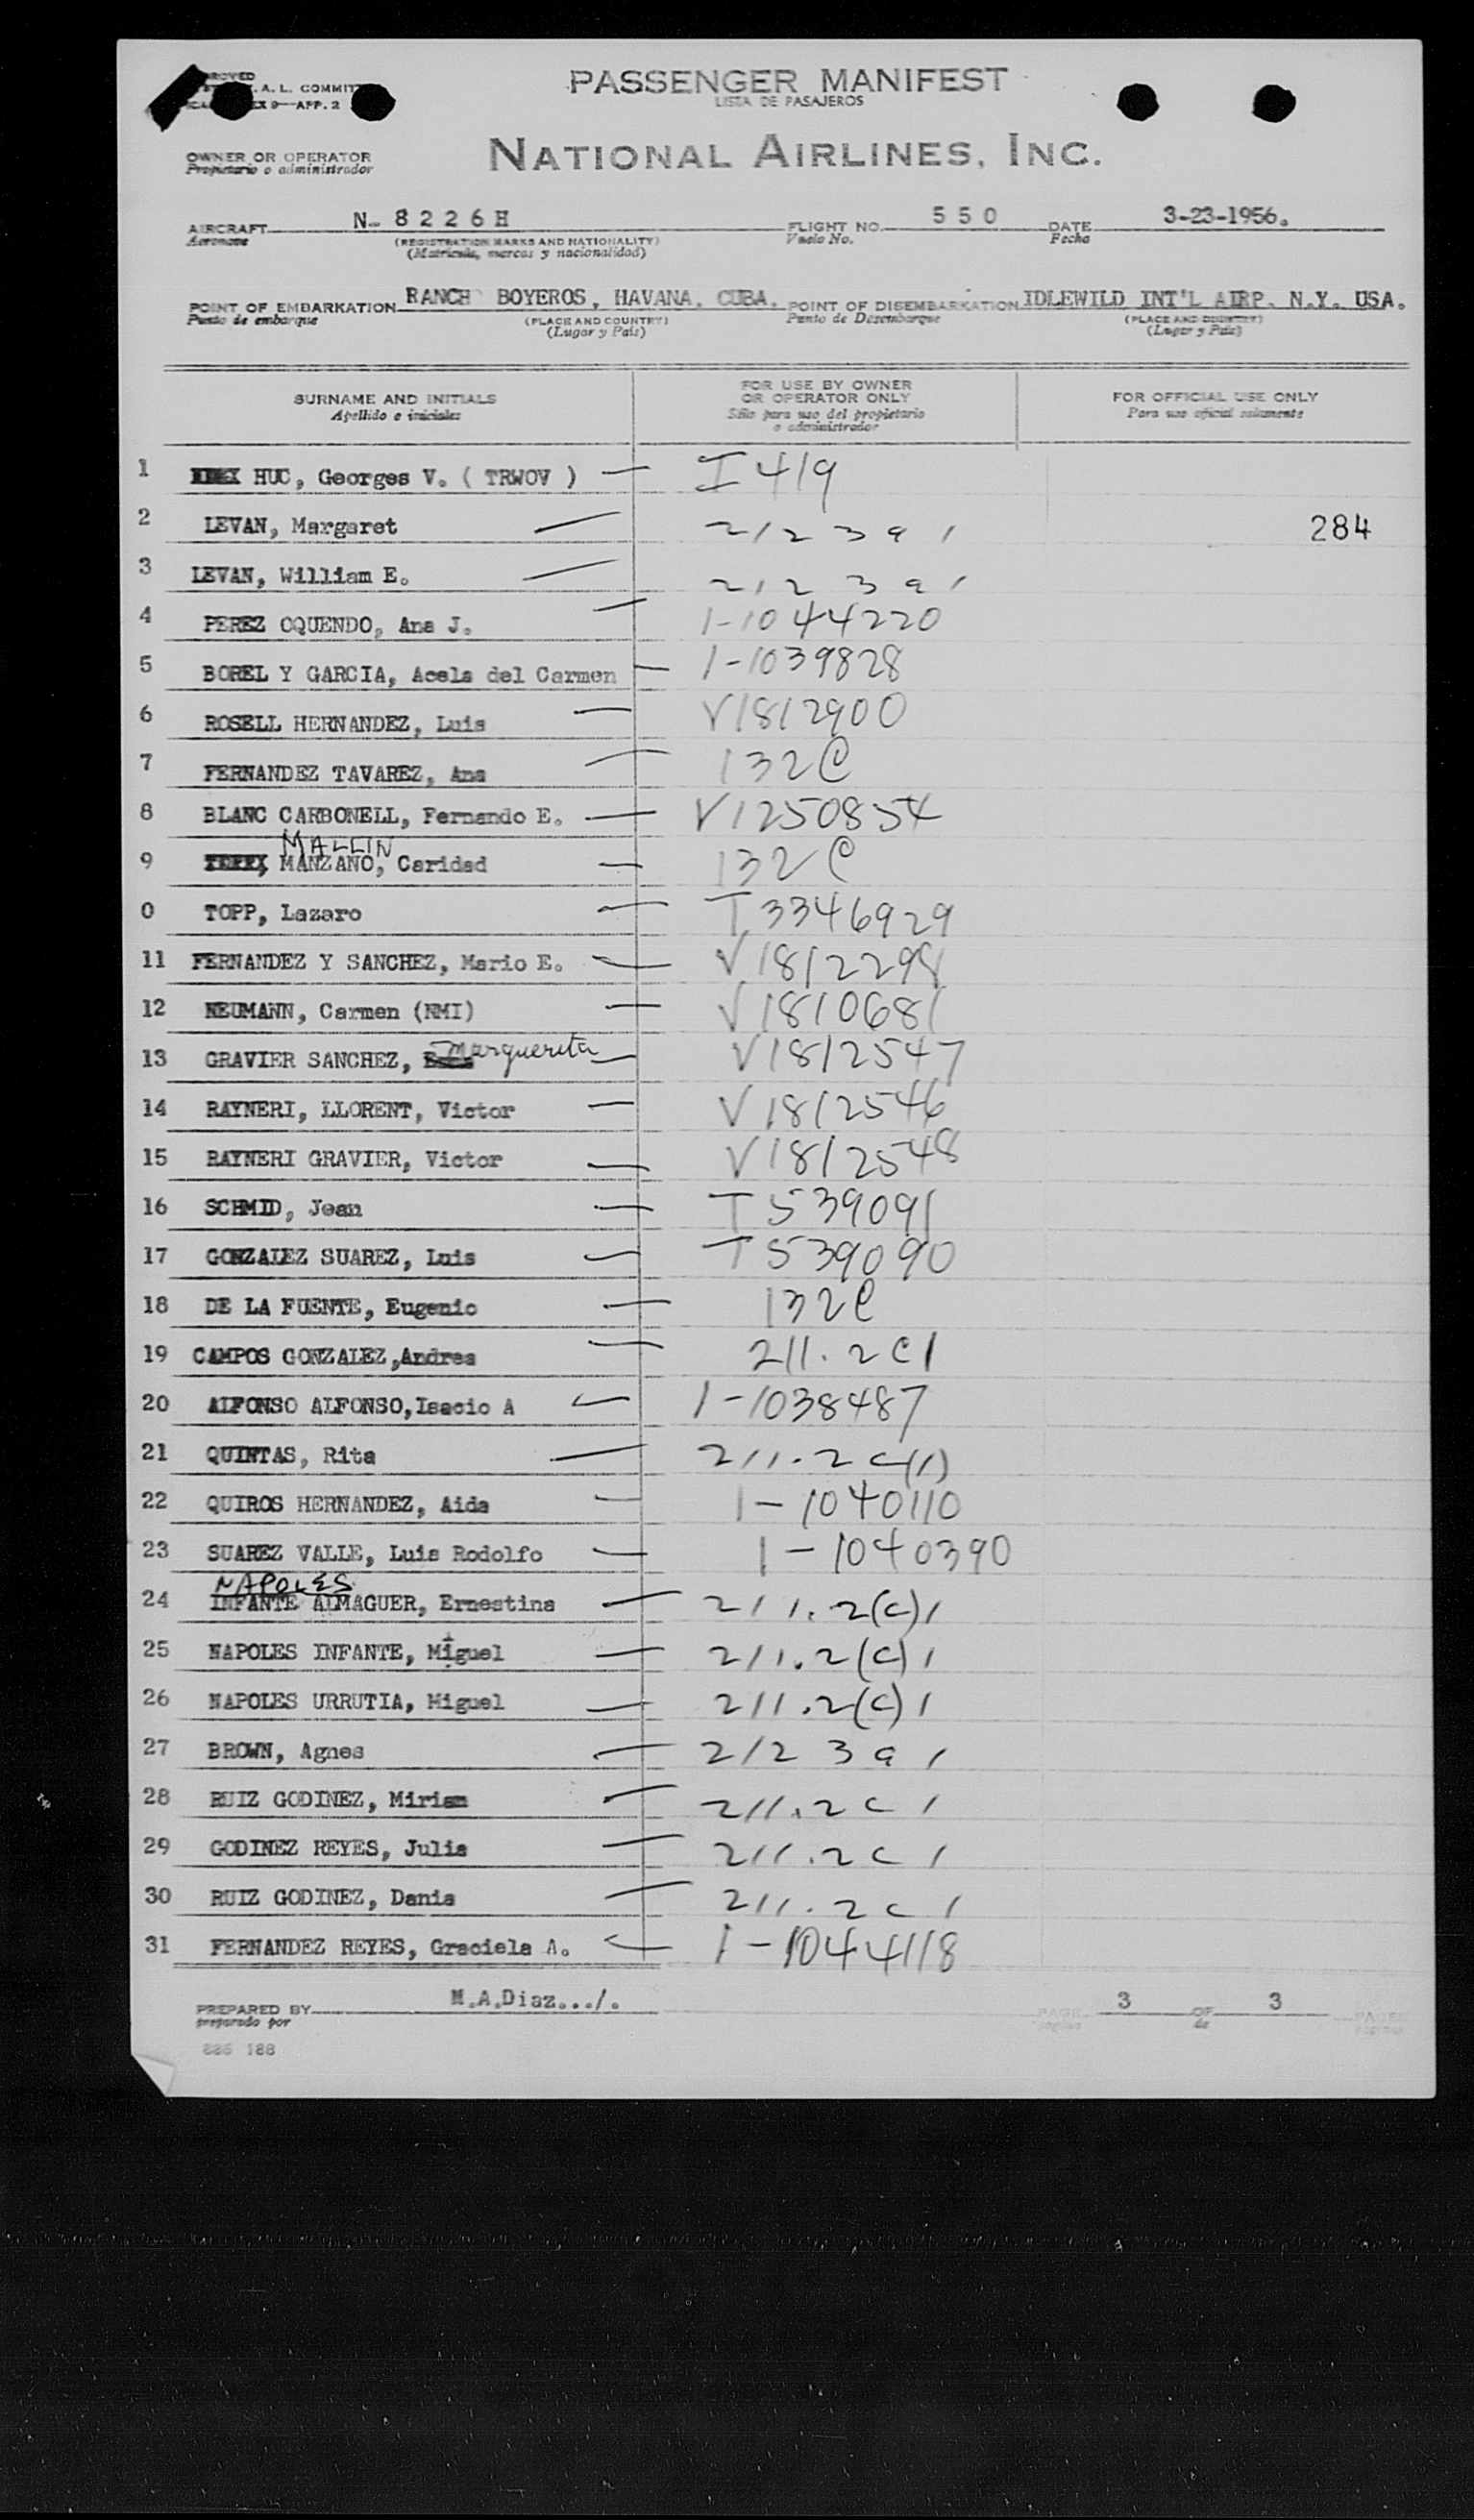 PASSENGER MANIFEST
LISTA DE PASAJEROS
A. L. COMMIT
9—APP. 2
NATIONAL AIRLINES, INC.
OWNER OR OPERATOR
Propietario o administrador
AIRCRAFT N- 8 2 2 6 H FLIGHT NO. 5 5 0 DATE 3-23-1956.
Aeronave (REGISTRATION MARKS AND NATIONALITY) Vuelo No. Fecha
(Matricula, marcas y nacionalidad)
POINT OF EMBARKATION RANCH BOYEROS, HAVANA, CUBA. POINT OF DISEMBARKATION IDLEWILD INT'L AIRP. N.Y. USA.
Punto de embarque (PLACE AND COUNTRY) Punto de Desembarque (PLACE AND COUNTRY)
(Lugar y Pais) (Lugar y Pais)
SURNAME AND INITIALS
Apellido e iniciales
FOR USE BY OWNER
OR OPERATOR ONLY
Sólo para uso del propietario
o administrador
FOR OFFICIAL USE ONLY
Para uso oficial solamente
1 HUC, Georges V. ( TRWOV ) — I 419
2 LEVAN, Margaret — 2123a1 284
3 LEVAN, William E. — 2123a1
4 PEREZ OQUENDO, Ana J. — 1-1044220
5 BOREL Y GARCIA, Acela del Carmen — 1-1039828
6 ROSELL HERNANDEZ, Luis — V1812900
7 FERNANDEZ TAVAREZ, Ana — 132C
8 BLANC CARBONELL, Fernando E. — V1250854
MALLIN
9 MANZANO, Caridad — 132C
0 TOPP, Lazaro — T3346929
11 FERNANDEZ Y SANCHEZ, Mario E. — V1812298
12 NEUMANN, Carmen (NMI) — V1810681
13 GRAVIER SANCHEZ, Marguerita — V1812547
14 RAYNERI, LLORENT, Victor — V1812546
15 RAYNERI GRAVIER, Victor — V1812548
16 SCHMID, Jean — T539091
17 GONZALEZ SUAREZ, Luis — T539090
18 DE LA FUENTE, Eugenio — 132C
19 CAMPOS GONZALEZ,Andrea — 211.2C1
20 ALFONSO ALFONSO,Isacio A — 1-1038487
21 QUINTAS, Rita — 211.2c(1)
22 QUIROS HERNANDEZ, Aida — 1-1040110
23 SUAREZ VALLE, Luis Rodolfo — 1-1040390
NAPOLES
24 INFANTE ALMAGUER, Ernestina — 211.2(c)1
25 NAPOLES INFANTE, Miguel — 211.2(c)1
26 NAPOLES URRUTIA, Miguel — 211.2(c)1
27 BROWN, Agnes — 2123a1
28 RUIZ GODINEZ, Miriam — 211.2c1
29 GODINEZ REYES, Julia — 211.2c1
30 RUIZ GODINEZ, Dania — 211.2c1
31 FERNANDEZ REYES, Graciela A. — 1-1044118
PREPARED BY M.A.Diaz.../. PAGE 3 OF 3 PAGES
preparado por pagina de paginas
886 188